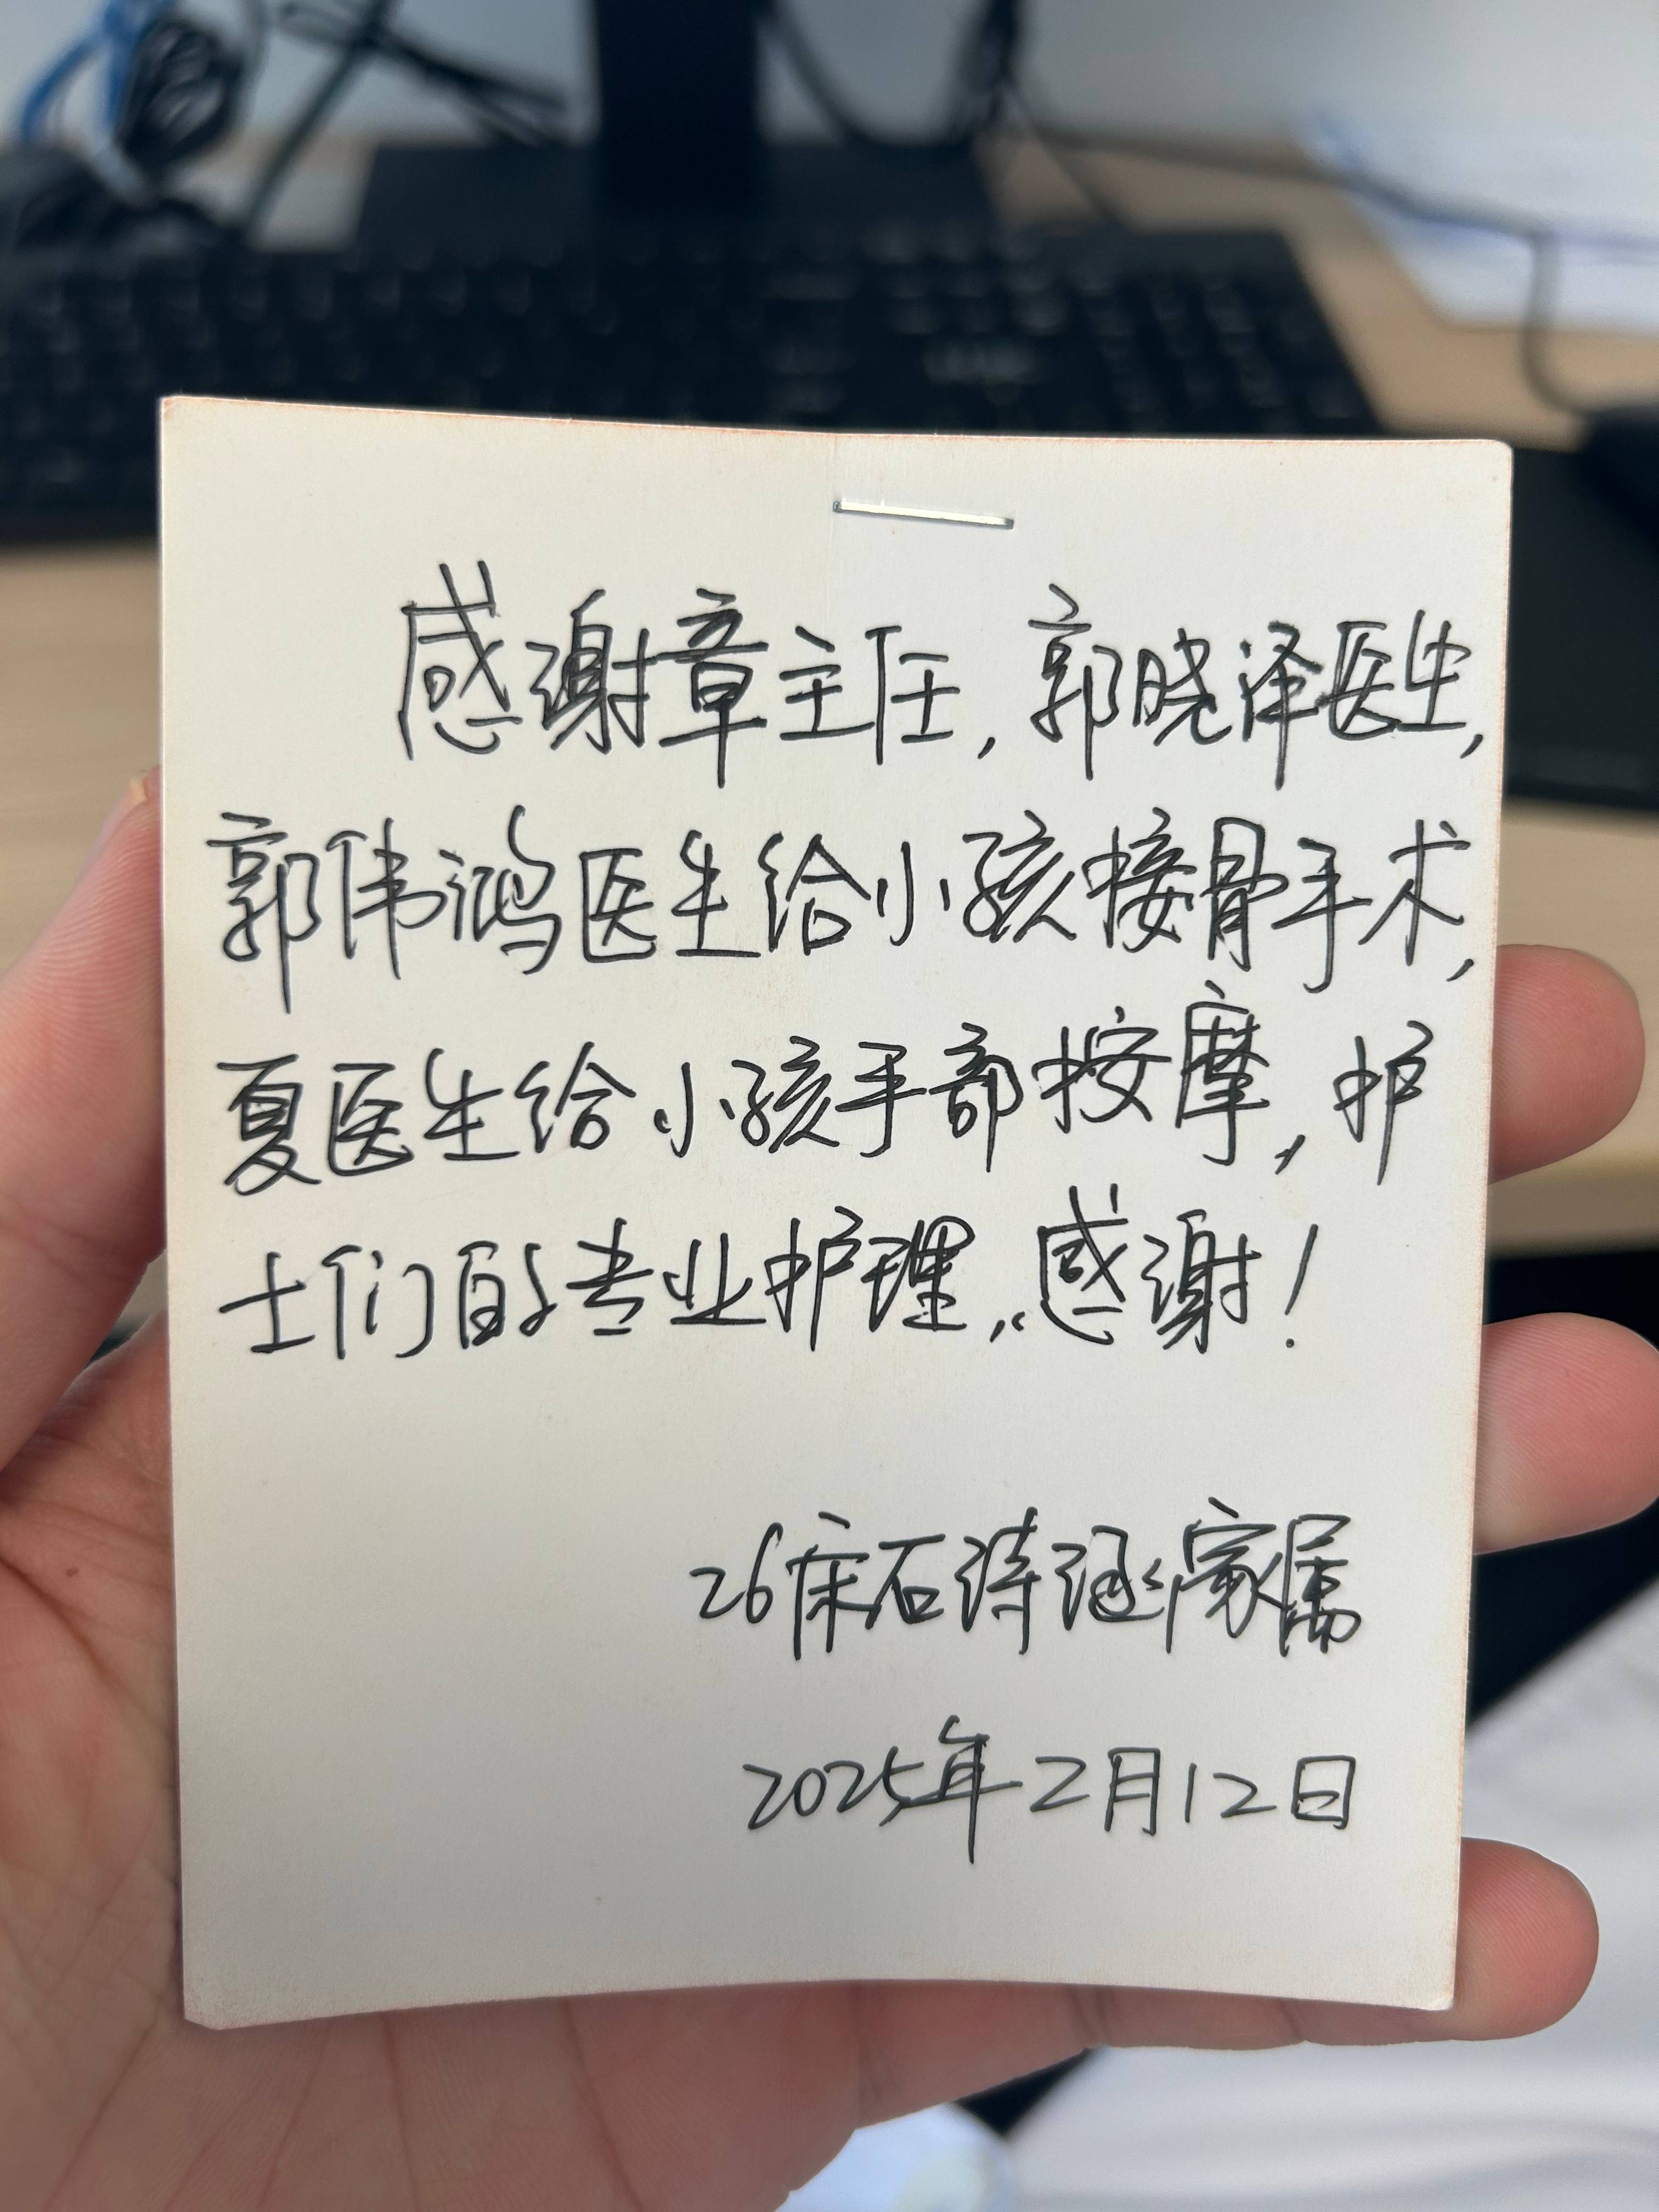 感谢章主任,郭晓泽医生,
郭伟鸿医生给小孩接骨手术,
夏医生给小孩手部按摩,护
士们的专业护理,感谢!
26床石诗涵家属
2025年2月12日